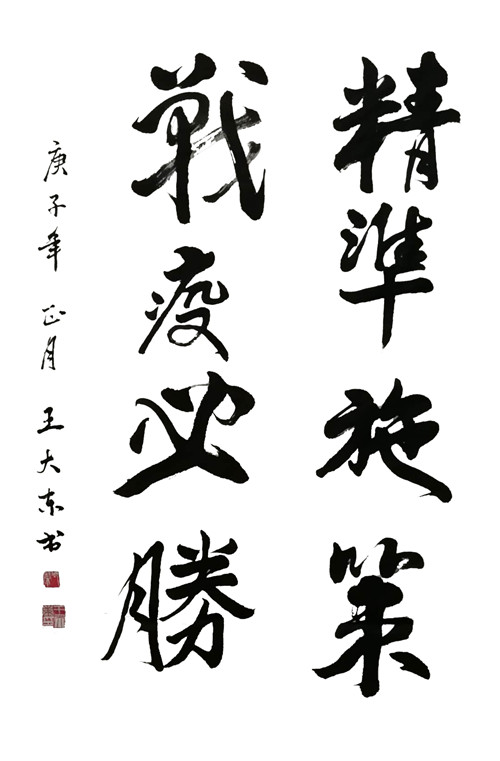 精準施策
戰疫必勝
庚子年 正月 王大东书